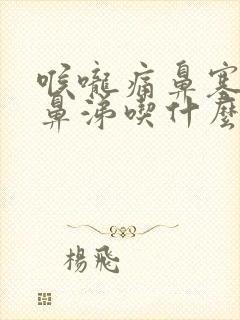 喉嚨痛鼻塞
鼻涕喫什麼
楊飛